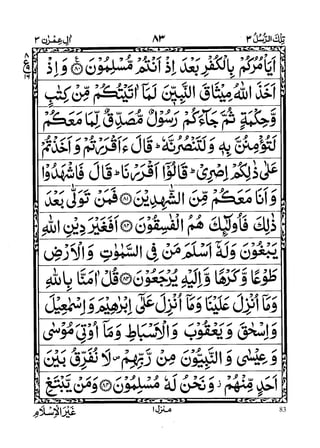 تِلۡكَ الرُّسُلُ ٣ ٨٣ اٰلِ عِمۡرٰن ٣
اَيَاۡمُرُكُمۡ بِالۡكُفۡرِ بَعۡدَ اِذۡ اَنۡتُمۡ مُّسۡلِمُوۡنَ ﴿٨٠﴾ وَاِذۡ
اَخَذَ اللّٰهُ مِيۡثَاقَ النَّبِيّٖنَ لَمَاۤ اٰتَيۡتُكُمۡ مِّنۡ كِتٰبٍ
وَّحِكۡمَةٍ ثُمَّ جَآءَكُمۡ رَسُوۡلٌ مُّصَدِّقٌ لِّمَا مَعَكُمۡ
لَتُؤۡمِنُنَّ بِهٖ وَلَتَنۡصُرُنَّهٗ ؕ قَالَ ءَاَقۡرَرۡتُمۡ وَاَخَذۡتُمۡ
عَلٰى ذٰلِكُمۡ اِصۡرِىۡ ؕ قَالُوۡۤا اَقۡرَرۡنَا ؕ قَالَ فَاشۡهَدُوۡا
وَاَنَا مَعَكُمۡ مِّنَ الشّٰهِدِيۡنَ ﴿٨١﴾ فَمَنۡ تَوَلّٰى بَعۡدَ
ذٰلِكَ فَاُولٰٓئِكَ هُمُ الۡفٰسِقُوۡنَ ﴿٨٢﴾ اَفَغَيۡرَ دِيۡنِ اللّٰهِ
يَبۡغُوۡنَ وَلَهٗۤ اَسۡلَمَ مَنۡ فِى السَّمٰوٰتِ وَالۡاَرۡضِ
طَوۡعًا وَّكَرۡهًا وَّاِلَيۡهِ يُرۡجَعُوۡنَ ﴿٨٣﴾ قُلۡ اٰمَنَّا بِاللّٰهِ
وَمَاۤ اُنۡزِلَ عَلَيۡنَا وَمَاۤ اُنۡزِلَ عَلٰٓى اِبۡرٰهِيۡمَ وَاِسۡمٰعِيۡلَ
وَاِسۡحٰقَ وَيَعۡقُوۡبَ وَالۡاَسۡبَاطِ وَمَاۤ اُوۡتِىَ مُوۡسٰى
وَعِيۡسٰى وَالنَّبِيُّوۡنَ مِنۡ رَّبِّهِمۡ ۖ لَا نُفَرِّقُ بَيۡنَ
اَحَدٍ مِّنۡهُمۡ ؗ وَنَحۡنُ لَهٗ مُسۡلِمُوۡنَ ﴿٨٤﴾ وَمَنۡ يَّبۡتَغِ
غَيۡرَ الۡاِسۡلَامِ منزل ١ 83